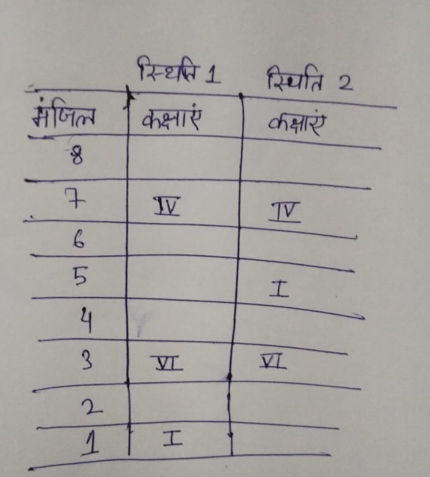 स्थिति 1 स्थिति 2
मंजिल कक्षाएं कक्षाएं
8
7 IV IV
6
5 I
4
3 VI VI
2
1 I